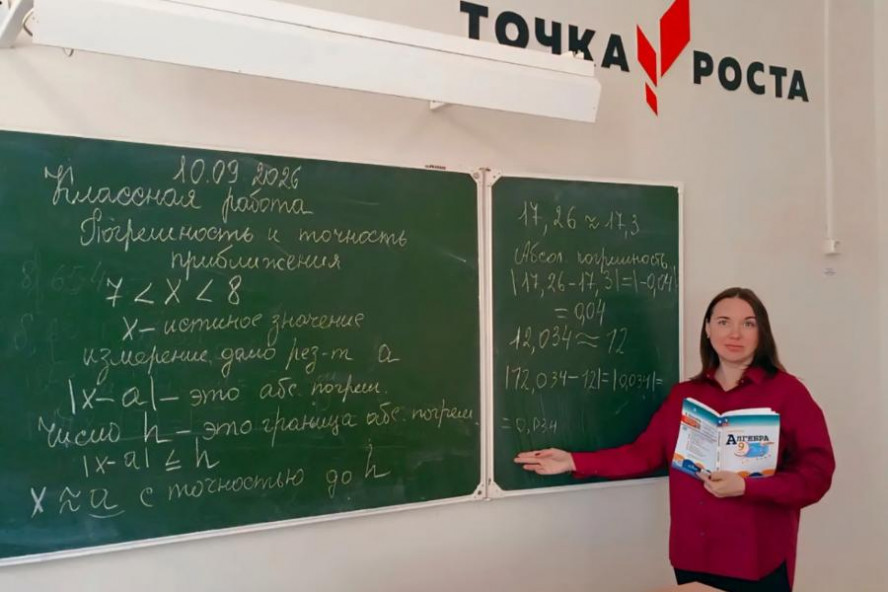 ТОЧКА РОСТА
10.09.2026
Классная работа
Погрешность и точность
приближения
7 < x < 8
x – истиное значение
измерение дало рез-т a
|x-a| – это абс. погреш.
Число h – это граница абс. погреш.
|x-a| ≤ h
x ≈ a с точностью до h
17,26 ≈ 17,3
Абсол. погрешность
|17,26-17,3|=|-0,04|
= 0,04
12,034 ≈ 12
|12,034-12|=|0,034|=
= 0,034
АЛГЕБРА
9